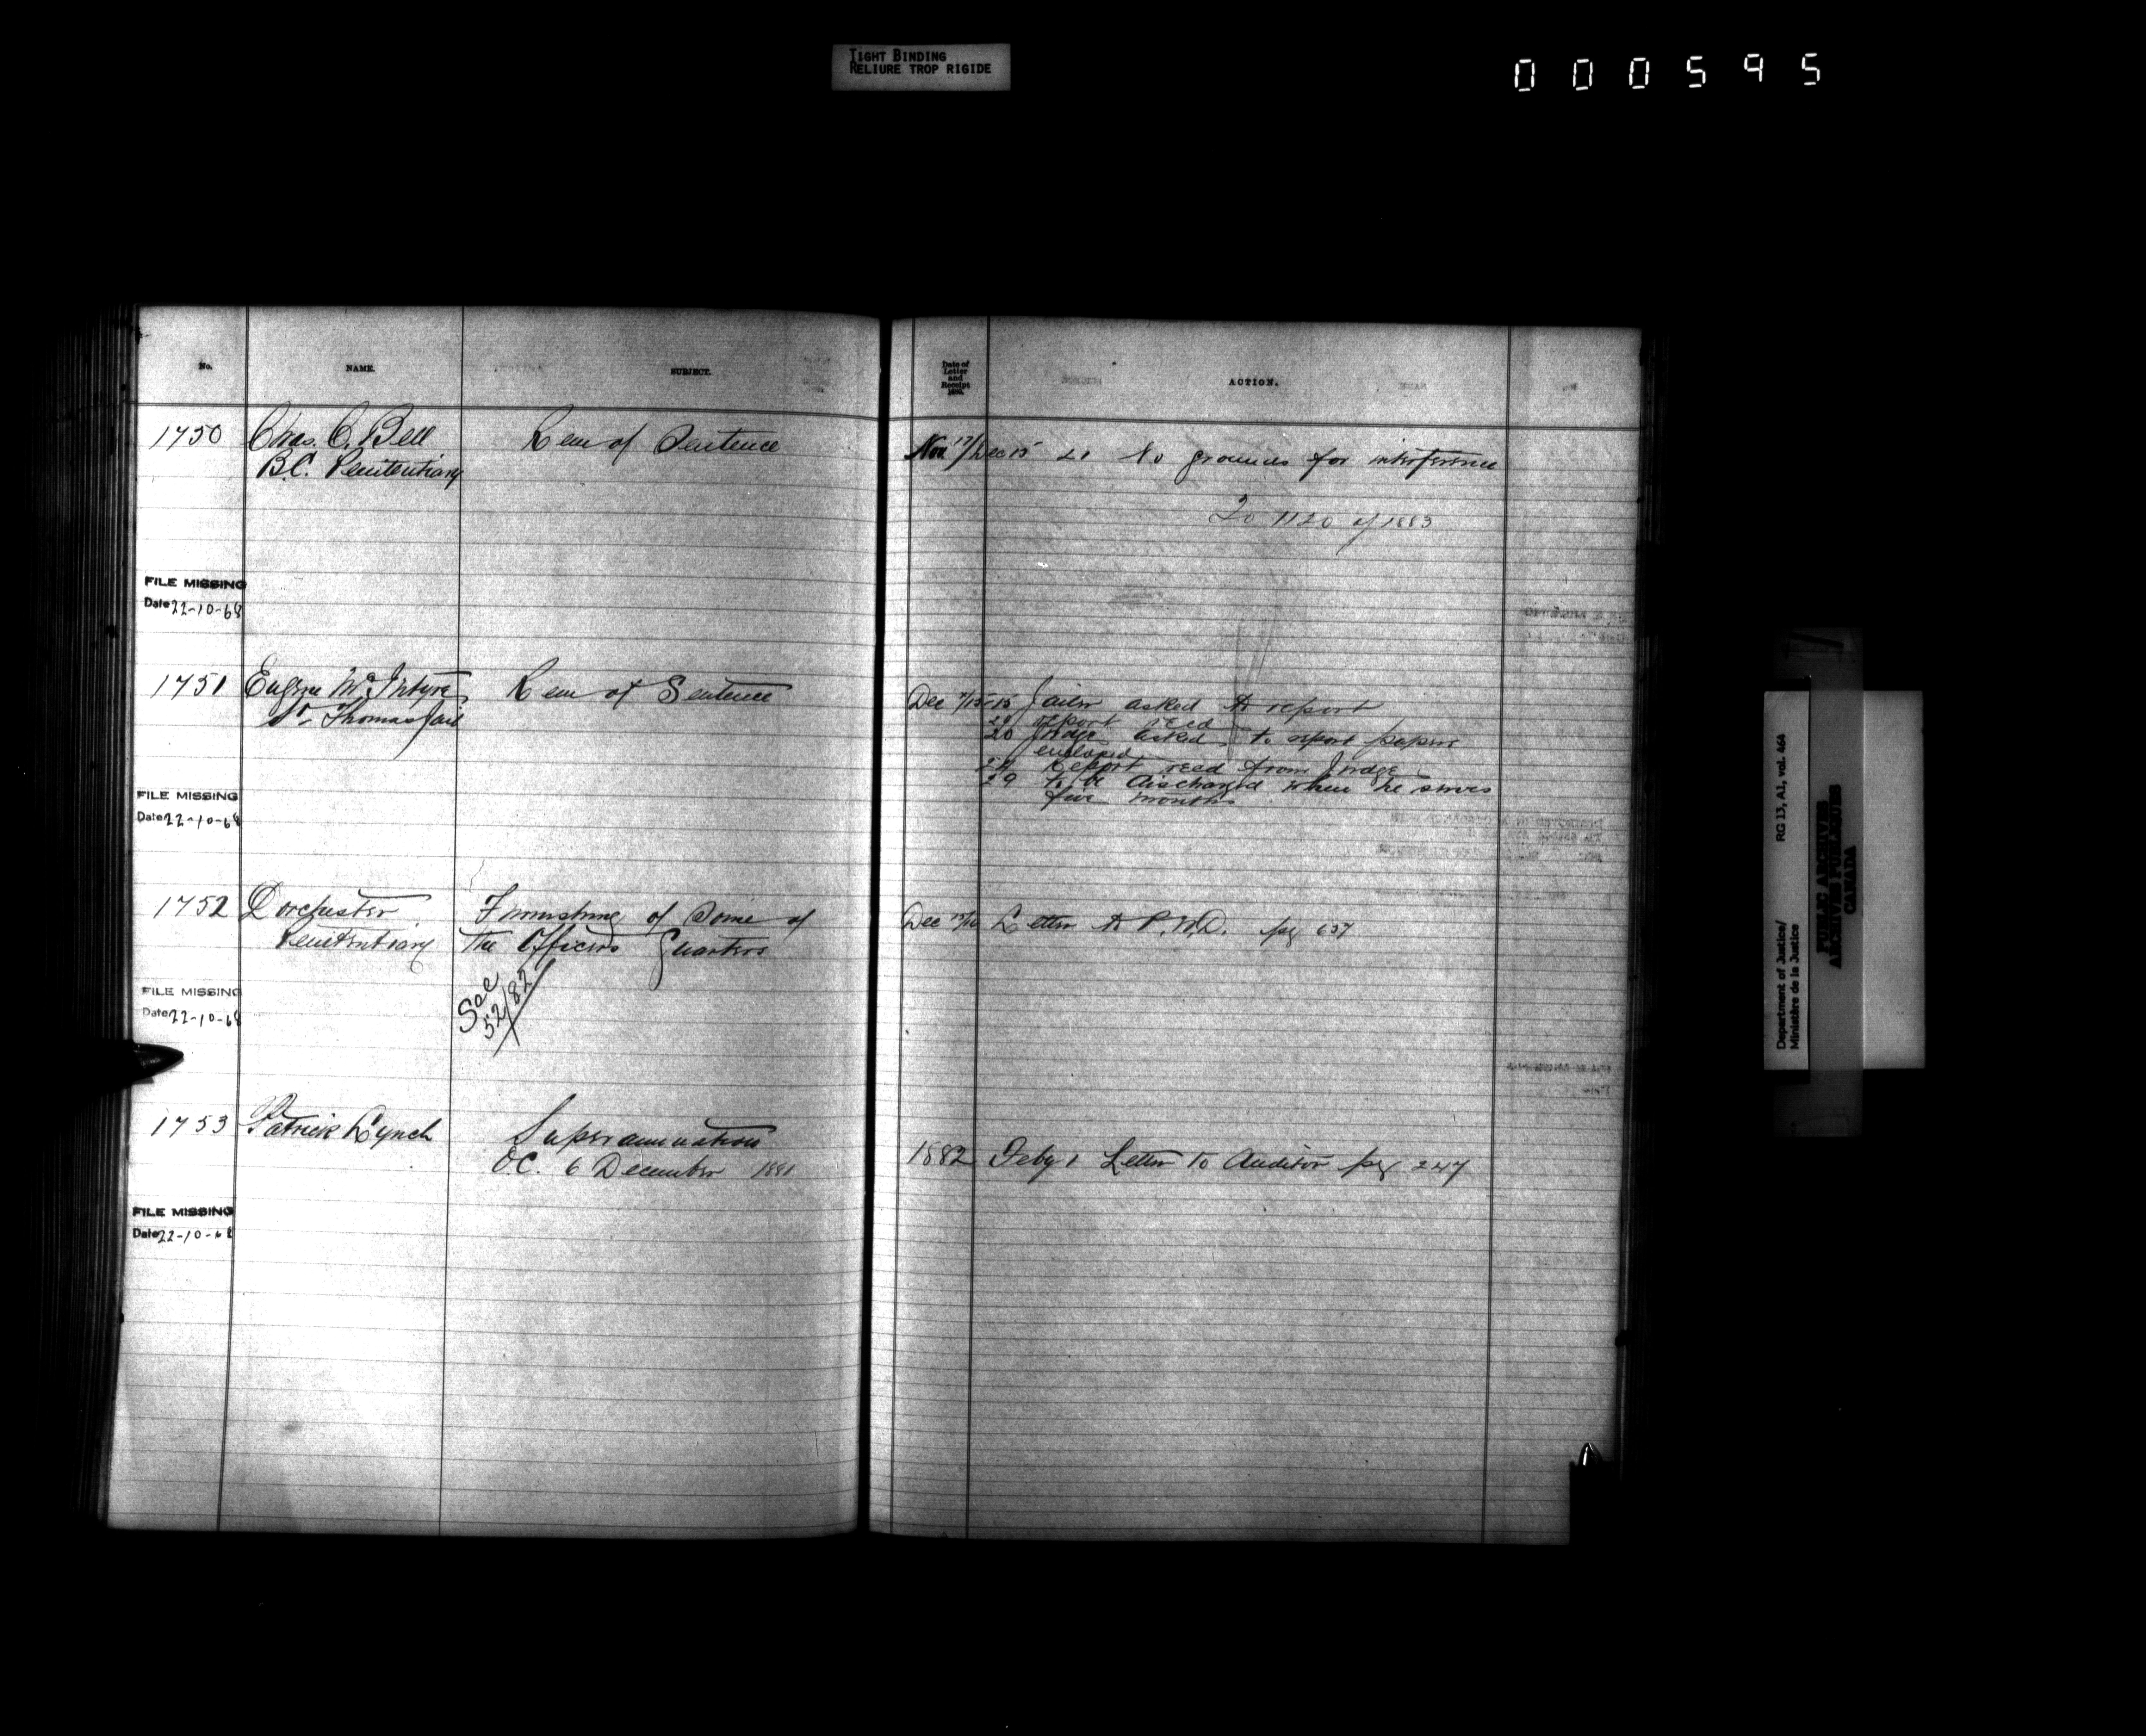 TIGHT BINDING
RELIURE TROP RIGIDE
000595
No.
NAME.
SUBJECT.
Date of
Letter
and
Receipt
ACTION.
1750 Chas. C. Bell Rem of Sentence
B.C. Penitentiary
Nov 17/Dec 15 21 No grounds for interference
To 1120 of 1883
FILE MISSING
Date 22-10-68
1751 Eugene McIntyre Rem of Sentence
St Thomas Jail
Dec 15 Jailor asked to report
20 report recd
20 Judge asked to report papers
enclosed
24 Report recd from Judge
29 to be discharged when he serves
five months
FILE MISSING
Date 22-10-68
1752 Dorchester Furnishing of Some of
Penitentiary The Officers Quarters
Dec 15/16 Letter to P.W.D. pg 637
See
52/82
FILE MISSING
Date 22-10-68
1753 Patrick Lynch Superannuation
O.C. 6 December 1881
1882 Feby 1 Letter to Auditor pg 247
FILE MISSING
Date 22-10-68
Department of Justice/ RG 13, A1, vol. 464
Ministère de la Justice
PUBLIC ARCHIVES
ARCHIVES PUBLIQUES
CANADA